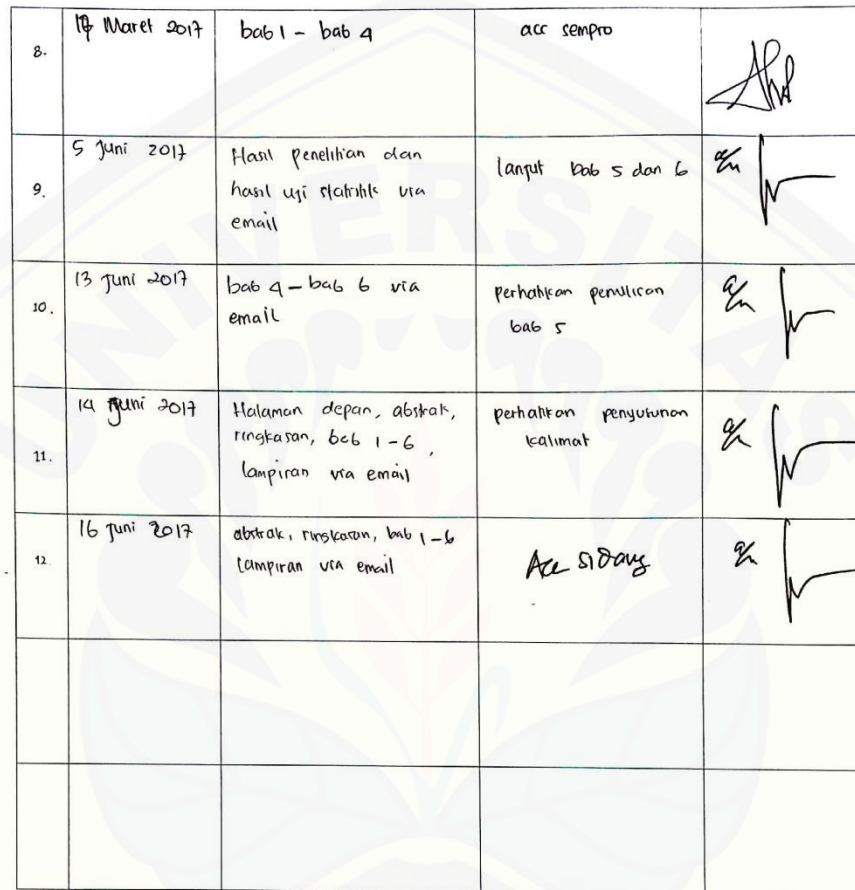 8.
Maret 2017
bab 1 - bab 4
acc sempro
9.
5 Juni 2017
Hasil penelitian dan
hasil uji statistik via
email
lanjut bab 5 dan 6
a/n
10.
13 Juni 2017
bab 4 - bab 6 via
email
perhatikan penulisan
bab 5
a/n
11.
14 Juni 2017
Halaman depan, abstrak,
ringkasan, bab 1 - 6,
lampiran via email
perhatikan penyusunan
kalimat
a/n
12
16 Juni 2017
abstrak, ringkasan, bab 1 - 6
lampiran via email
Acc sidang
a/n
UNIVERSITAS